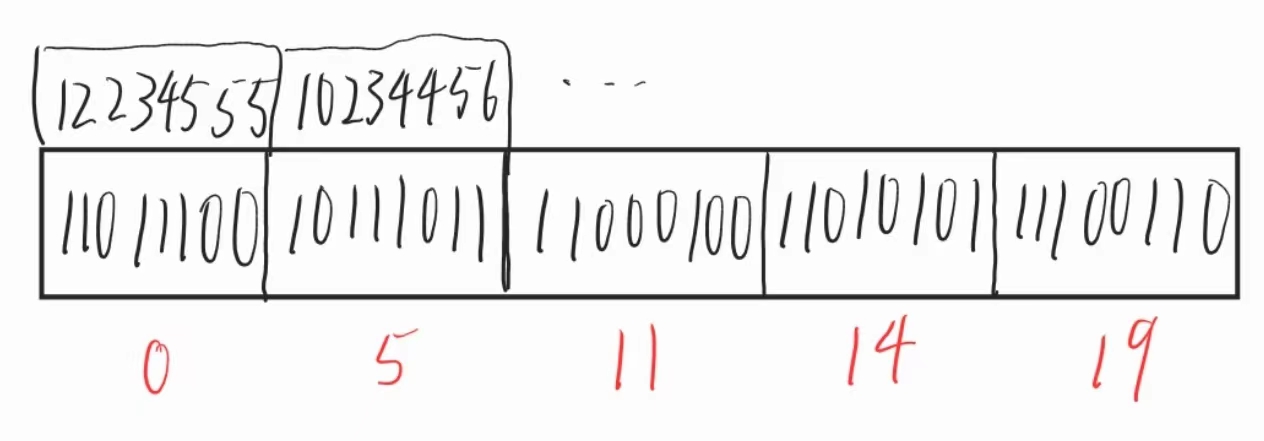 12234555 10234456 ...
11011100 10111011 11000100 11010101 11100110
0 5 11 14 19